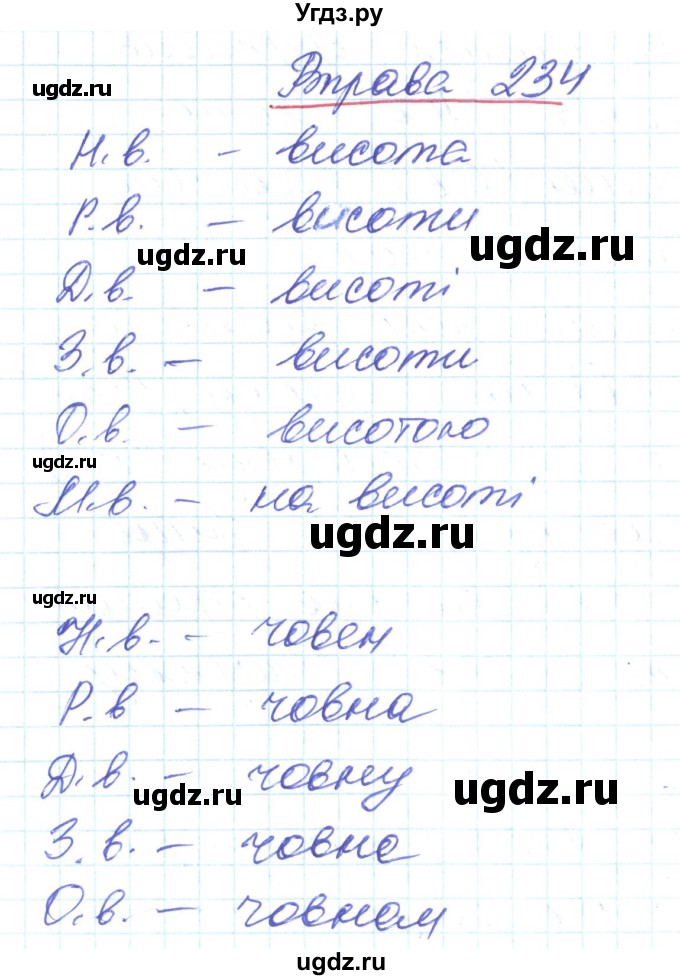 Угдз.ру
ugdz.ru
Вправа 234
Н.в. – висота
Р.в. – висоти
ugdz.ru
ugdz.ru
Д.в. – висоті
З.в. – висоти
О.в. – висотою
ugdz.ru
М.в. – на висоті
ugdz.ru
ugdz.ru
Н.в. – човен
Р.в – човна
Д.в. – човну
ugdz.ru
ugdz.ru
З.в. – човна
О.в. – човном
ugdz.ru